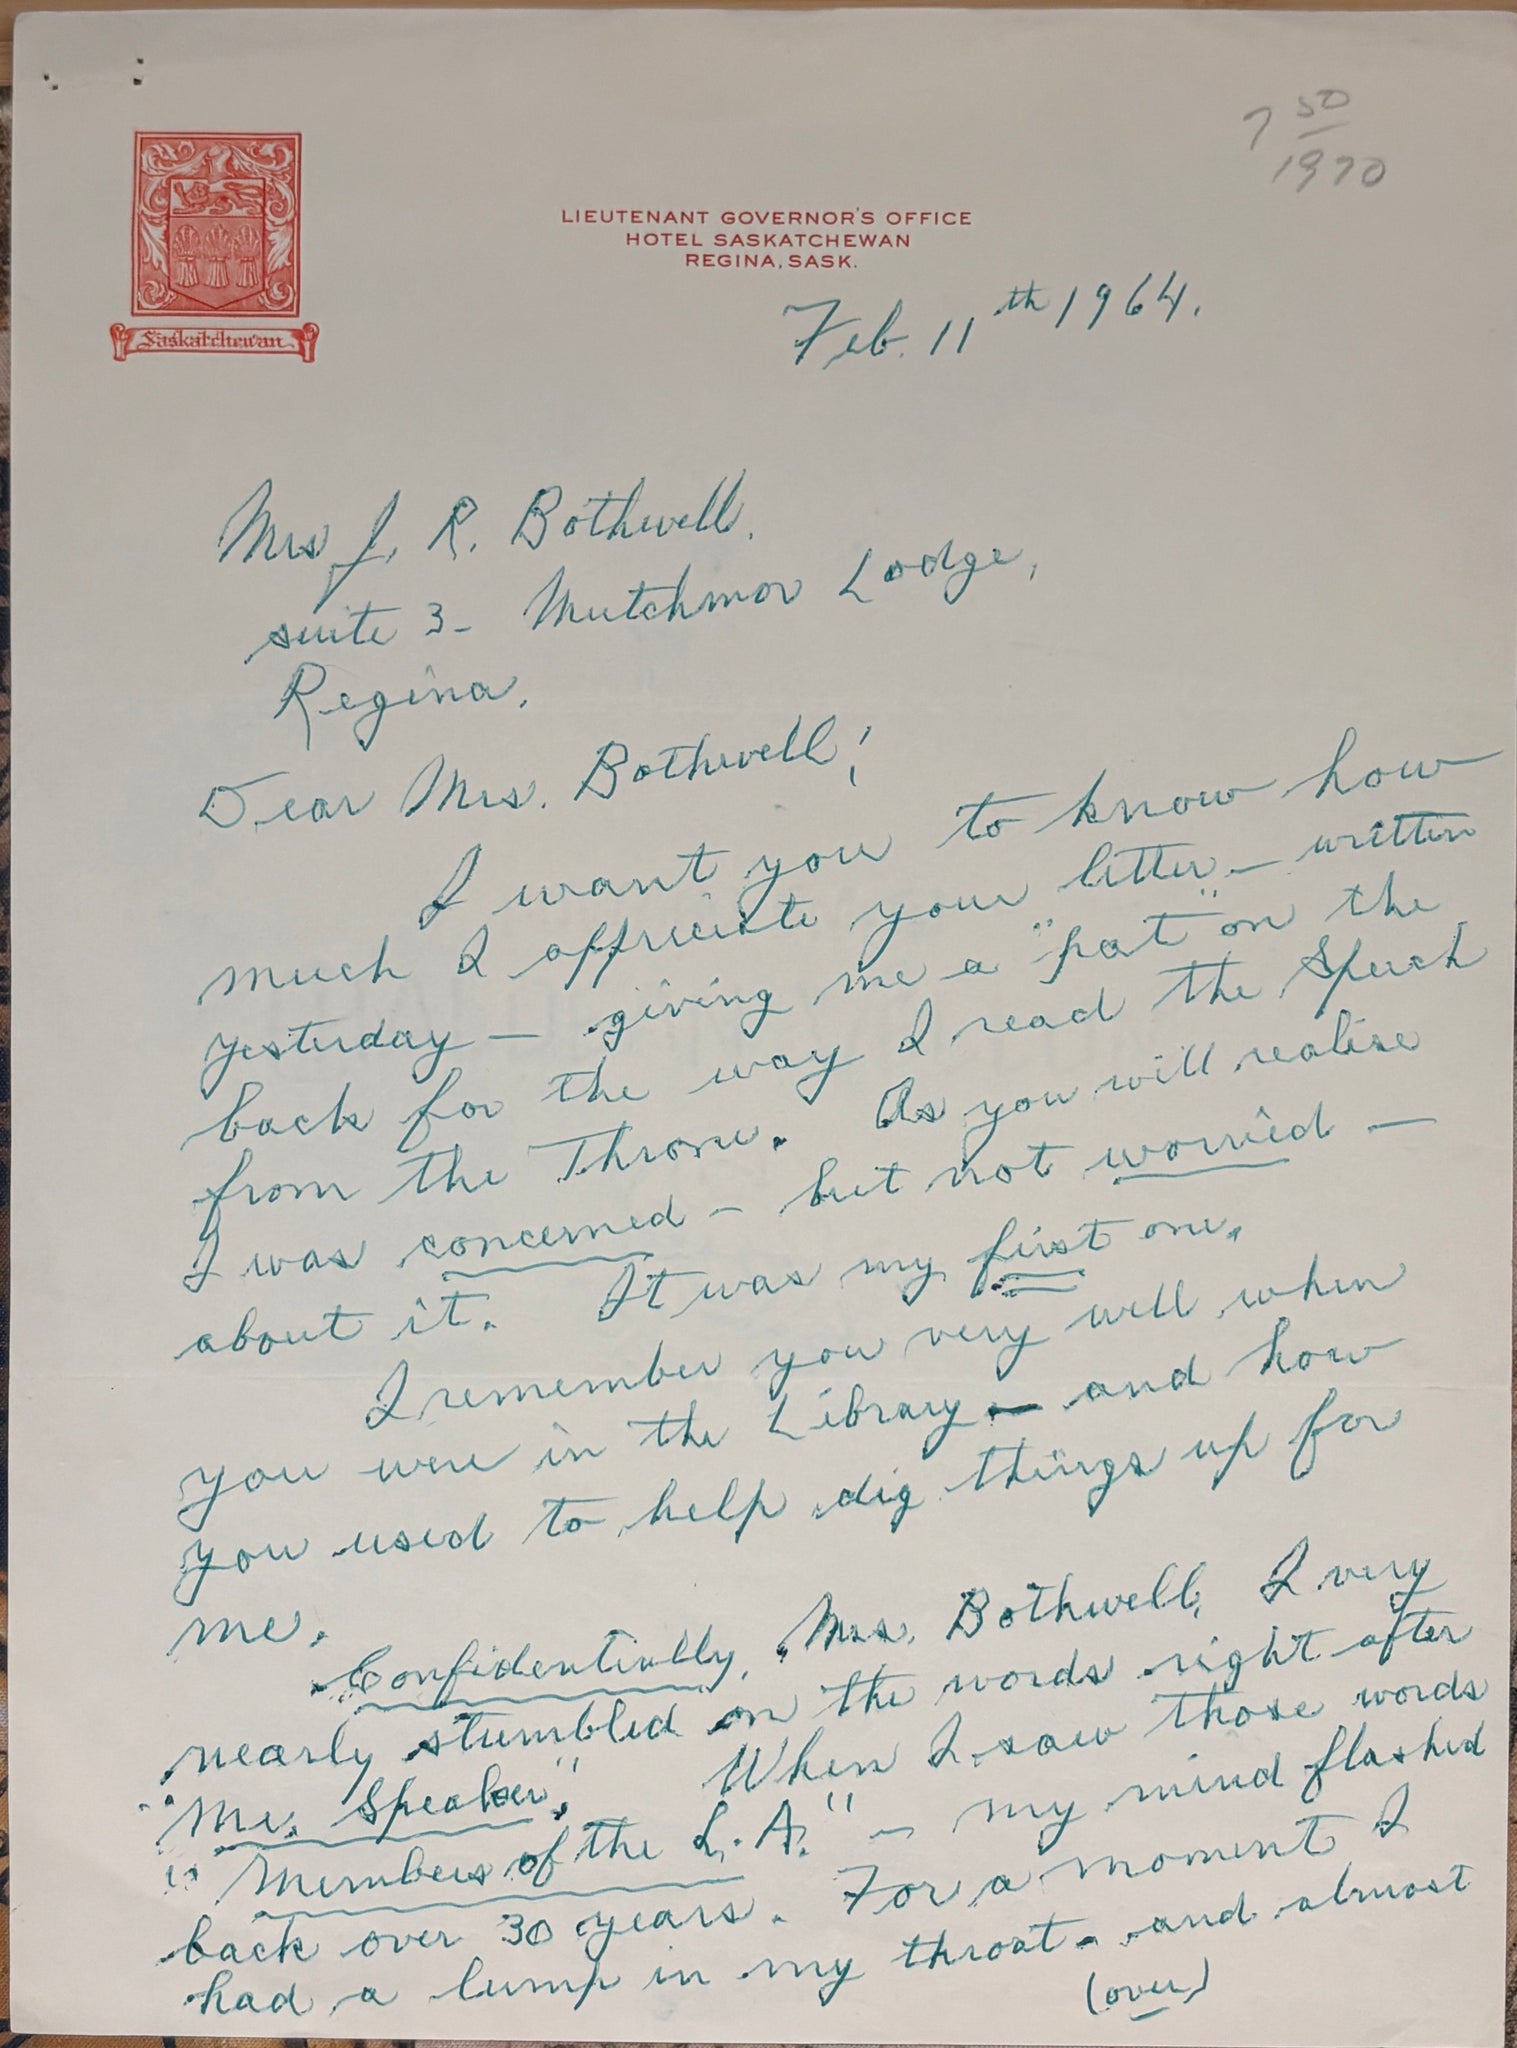 7 50
1970
LIEUTENANT GOVERNOR'S OFFICE
HOTEL SASKATCHEWAN
REGINA, SASK.
Saskatchewan
Feb. 11th 1964.
Mrs J. R. Bothwell.
suite 3- Mutchmor Lodge,
Regina.
Dear Mrs. Bothwell;
I want you to know how
much I appreciate your letter - written
yesterday - giving me a "pat" on the
back for the way I read the Speech
from the Throne. As you will realise
I was concerned - but not worried -
about it. It was my first one.
I remember you very well when
you were in the Library - and how
you used to help dig things up for
me.
Confidentially, Mrs. Bothwell, I very
nearly stumbled on the words right after
"Mr. Speaker". When I saw those words
"Members of the L.A." - my mind flashed
back over 30 years. For a moment I
had a lump in my throat - and almost
(over)